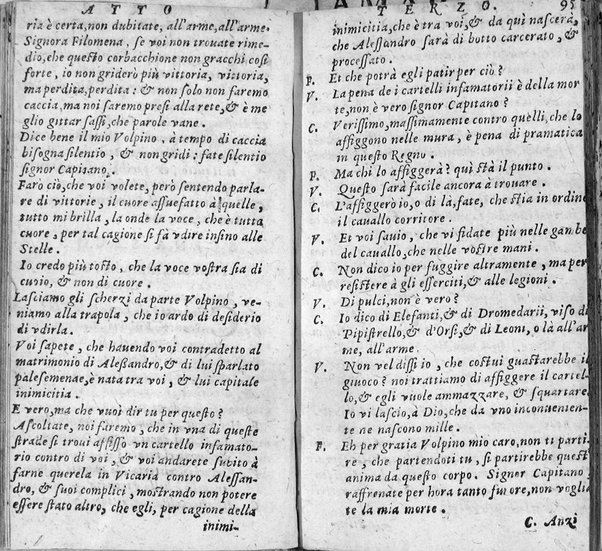 ATTO
ria è certa, non dubitate, all'arme, all'arme.
Signora Filomena, se voi non trouate rime-
dio, che questo corbacchione non gracchi così
forte, io non griderò più vittoria, vittoria,
ma perdita, perdita: & non solo non faremo
caccia, ma noi saremo presi alla rete, & è me
glio gittar sassi, che parole vane.
Dice bene il mio Volpino, à tempo di caccia
bisogna silentio, & non gridi: fate silentio
signor Capitano.
Farò ciò, che voi volete, però sentendo parla-
re di vittorie, il cuore assuefatto à quelle,
tutto mi brilla, la onde la voce, che è tutta
cuore, per tal cagione si fà vdire infino alle
Stelle.
Io credo più tosto, che la voce vostra sia di
cuoio, & non di cuore.
Lasciamo gli scherzi da parte Volpino, ve-
niamo alla trapola, che io ardo di desiderio
di vdirla.
Voi sapete, che hauendo voi contradetto al
matrimonio di Alessandro, & di lui sparlato
palesemenae, è nata tra voi, & lui capitale
inimicitia.
E vero, ma che vuoi dir tu per questo?
Ascoltate, noi faremo, che in vna di queste
strade si troui affisso vn cartello infamato-
rio contro di voi, & voi andarete subito à
farne querela in Vicaria contro Alessan-
dro, & suoi complici, mostrando non potere
essere stato altro, che egli, per cagione della
inimi-
TERZO. 95
inimicitia, che è tra voi, & da quì nascerà,
che Alessandro sarà di botto carcerato, &
processato.
P. Et che potrà egli patir per ciò?
V. La pena de i cartelli infamatorii è della mor
te, non è vero signor Capitano?
C. Verissimo, massimamente contro quelli, che lo
affiggono nelle mura, è pena di pramatica
in questo Regno.
P. Ma chi lo affiggerà? quì stà il punto.
V. Questo sarà facile ancora à trouare.
C. L'affiggerò io, o di là, fate, che stia in ordine
il cauallo corritore.
V. Et voi sauio, che vi fidate più nelle gambe
del cauallo, che nelle vostre mani.
C. Non dico io per fuggire altramente, ma per
resistere à gli esserciti, & alle legioni.
V. Di pulci, non è vero?
C. Io dico di Elefanti, & di Dromedarii, viso di
Pipistrello, & d'Orsi, & di Leoni, o là all'ar
me, all'arme.
V. Non vel dissi io, che costui guastarebbe il
giuoco? noi trattiamo di affiggere il cartel-
lo, & egli vuole ammazzare, & squartare.
Io vi lascio, à Dio, che da vno inconuenien-
te ne nascono mille.
F. Eh per gratia Volpino mio caro, non ti parti
re, che partendoti tu, si partirebbe quest
anima da questo corpo. Signor Capitano
raffrenate per hora tanto furore, non voglia
te la mia morte.
C. Anzi